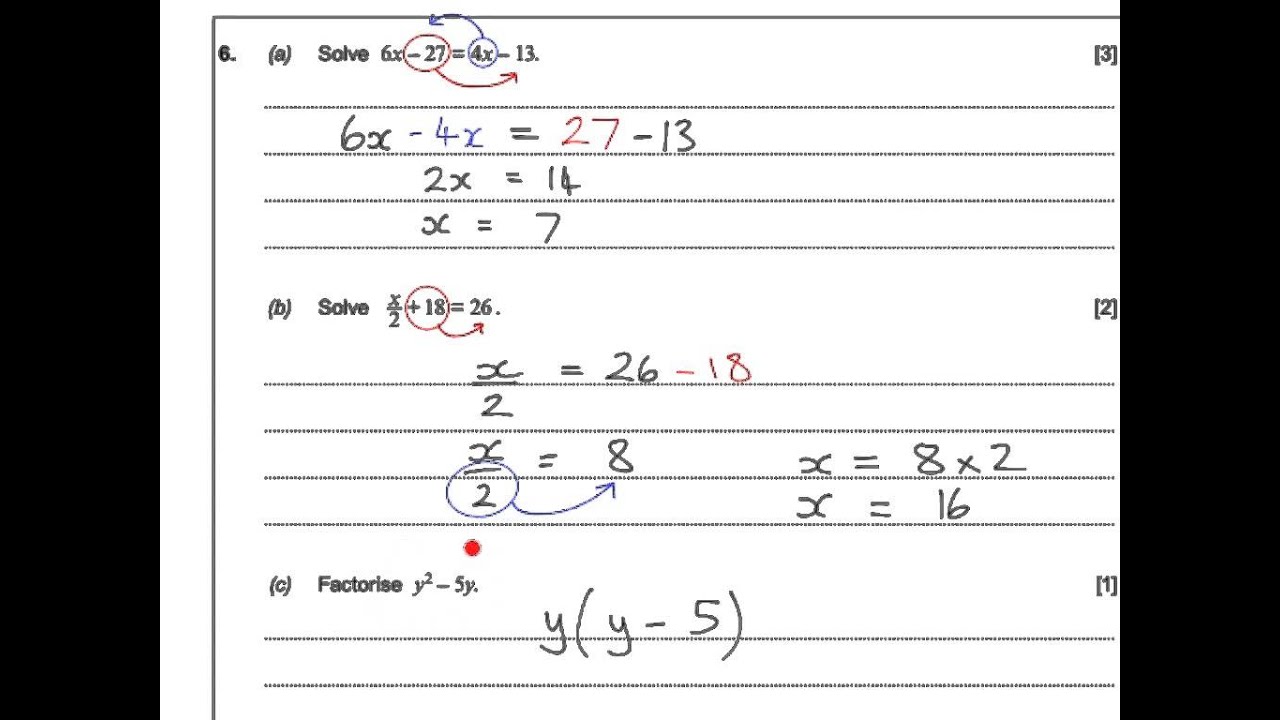 6. (a) Solve 6x – 27 = 4x – 13. [3]
6x - 4x = 27 - 13
2x = 14
x = 7
(b) Solve x/2 + 18 = 26. [2]
x/2 = 26 - 18
x/2 = 8 x = 8 × 2
x = 16
(c) Factorise y² – 5y. [1]
y(y - 5)